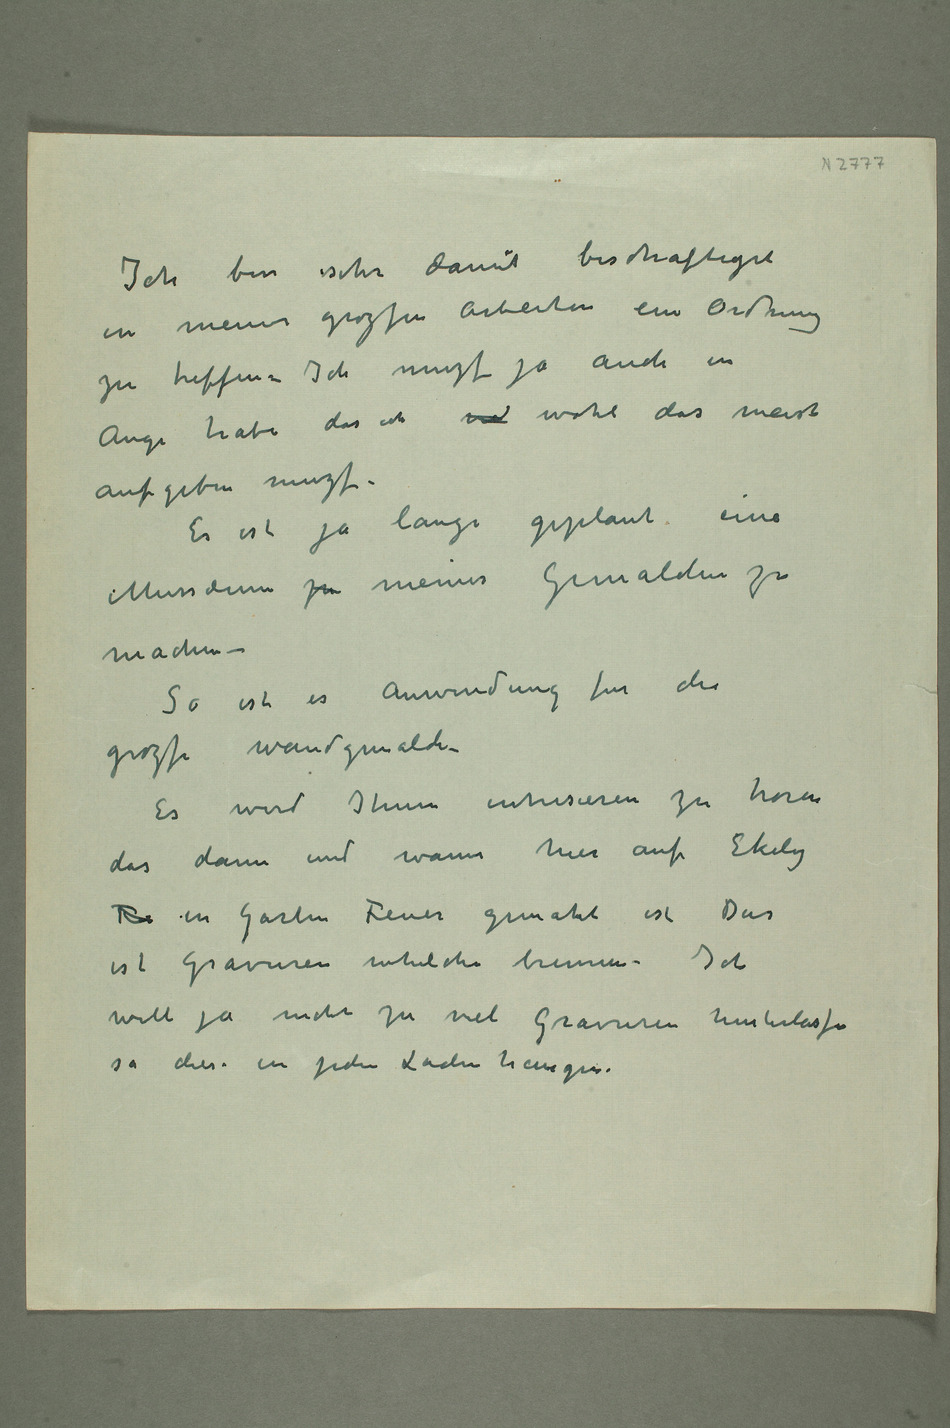 N 2777
Ich bin sehr damit beschäftiget
in meiner grozsen Arbeiten ein Ordnung
zu treffen – Ich muzs ja auch in
Auge habe das ich wohl das meist
aufgeben muzs –
Es ist ja lange geplant eine
Mussæum zu meiner Gemälden zu
machen –
So ist es Anwendung fur die
grozse wandgemälde –
Es wird Ihnen intresieren zu hören
das dann und wann hier auf Ekely
in Garten Feuer gemakt ist Das
ist Gravuren whelche brennen – Ich
will ja nicht zu viel Gravuren hinterlasse
so dies in jeden Laden hängen.